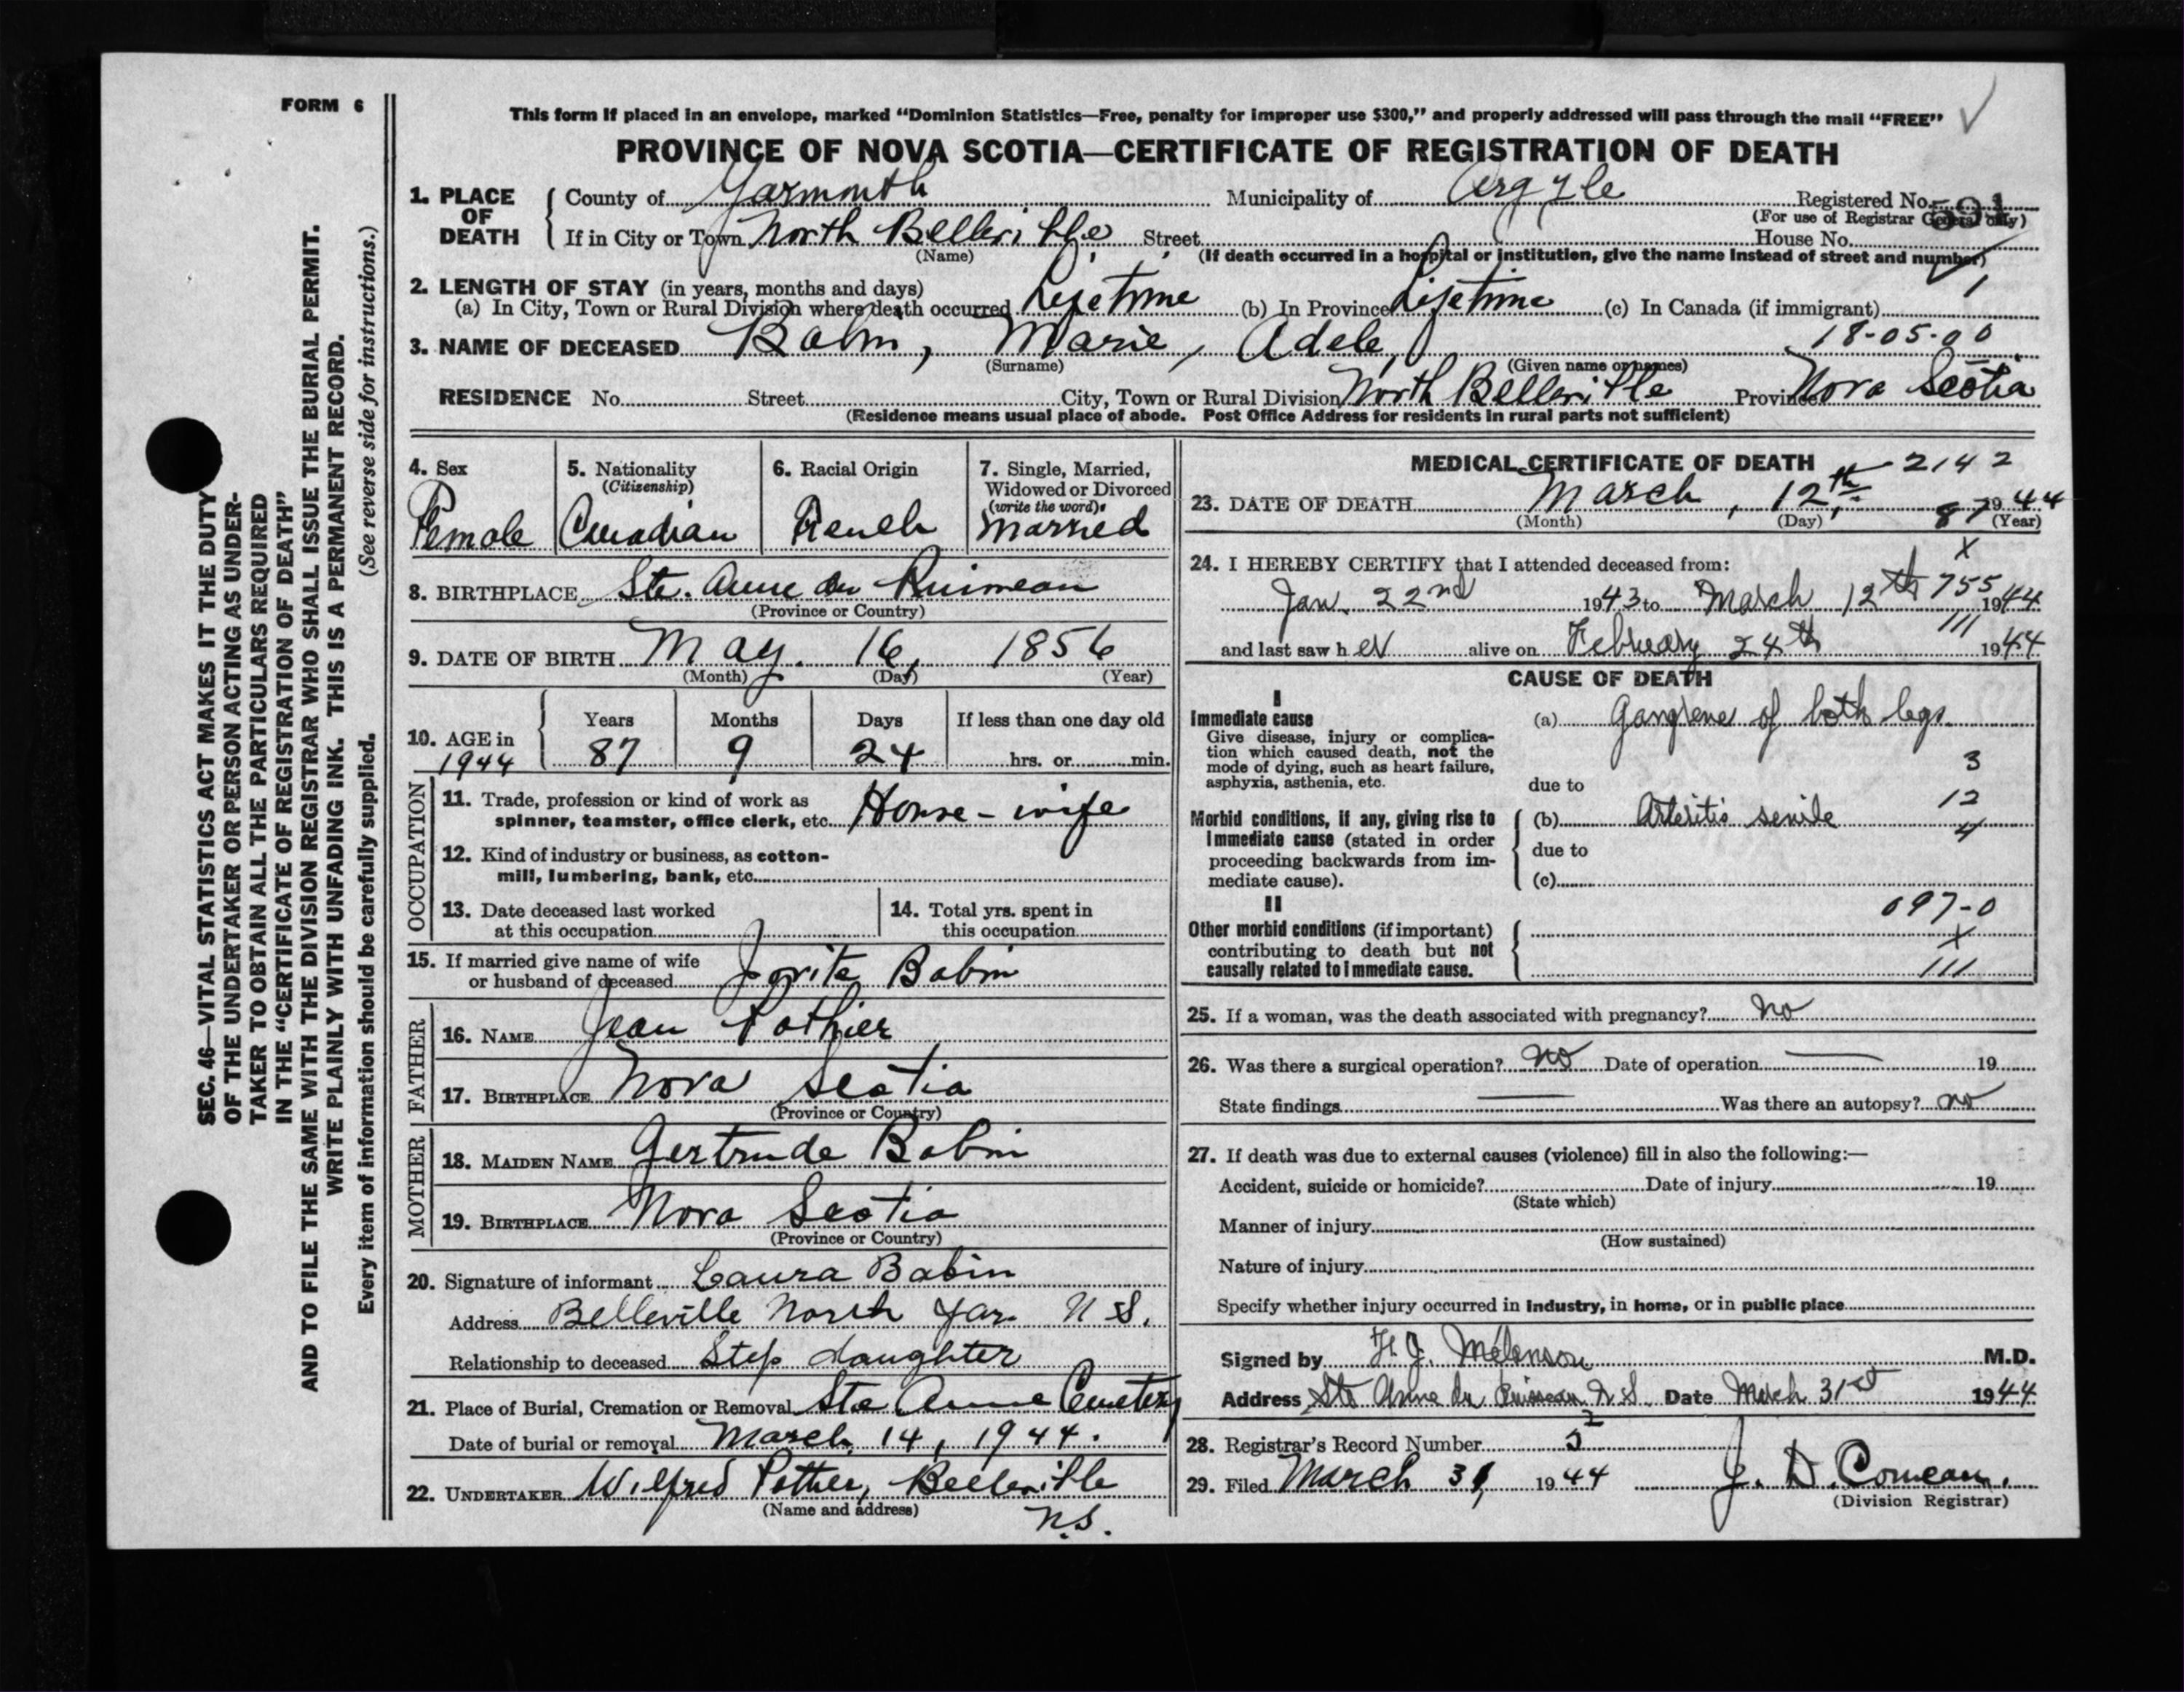 FORM 6
This form if placed in an envelope, marked “Dominion Statistics—Free, penalty for improper use $300,” and properly addressed will pass through the mail “FREE”
PROVINCE OF NOVA SCOTIA—CERTIFICATE OF REGISTRATION OF DEATH
1. PLACE OF DEATH County of Yarmouth Municipality of Argyle Registered No. 591
(For use of Registrar General only)
If in City or Town North Belleville Street House No.
(Name) (If death occurred in a hospital or institution, give the name instead of street and number)
2. LENGTH OF STAY (in years, months and days)
(a) In City, Town or Rural Division where death occurred Lifetime (b) In Province Lifetime (c) In Canada (if immigrant)
18-05-00
3. NAME OF DECEASED Babin, Marie, Adele,
(Surname) (Given name or names)
RESIDENCE No. Street City, Town or Rural Division North Belleville Province Nova Scotia
(Residence means usual place of abode. Post Office Address for residents in rural parts not sufficient)
4. Sex Female
5. Nationality (Citizenship) Canadian
6. Racial Origin French
7. Single, Married, Widowed or Divorced (write the word) Married
8. BIRTHPLACE Ste. Anne du Ruisseau
(Province or Country)
9. DATE OF BIRTH May. 16, 1856
(Month) (Day) (Year)
10. AGE in 1944 Years 87 Months 9 Days 24 If less than one day old hrs. or min.
OCCUPATION
11. Trade, profession or kind of work as spinner, teamster, office clerk, etc. House-wife
12. Kind of industry or business, as cotton-mill, lumbering, bank, etc.
13. Date deceased last worked at this occupation
14. Total yrs. spent in this occupation
15. If married give name of wife or husband of deceased Babin
FATHER
16. NAME Jean Pothier
17. BIRTHPLACE Nova Scotia
(Province or Country)
MOTHER
18. MAIDEN NAME Gertrude Babin
19. BIRTHPLACE Nova Scotia
(Province or Country)
20. Signature of informant Laura Babin
Address Belleville North Yar. N S.
Relationship to deceased Step daughter
21. Place of Burial, Cremation or Removal Ste Anne Cemetery
Date of burial or removal March 14, 1944.
22. UNDERTAKER Wilfred Pothier, Belleville
(Name and address) N.S.
MEDICAL CERTIFICATE OF DEATH 2142
23. DATE OF DEATH March, 12th, 1944
(Month) (Day) 87 (Year)
X
24. I HEREBY CERTIFY that I attended deceased from:
Jan. 22nd 1943 to March 12th 1944
755
111
and last saw her alive on February 24th 1944
CAUSE OF DEATH
I
Immediate cause
Give disease, injury or complication which caused death, not the mode of dying, such as heart failure, asphyxia, asthenia, etc.
(a) Gangrene of both legs
3
due to
12
Morbid conditions, if any, giving rise to immediate cause (stated in order proceeding backwards from immediate cause).
(b) Arteritis senile
4
due to
(c)
097-0
II
Other morbid conditions (if important) contributing to death but not causally related to immediate cause.
X
111
25. If a woman, was the death associated with pregnancy? No
26. Was there a surgical operation? No Date of operation — 19
State findings — Was there an autopsy? no
27. If death was due to external causes (violence) fill in also the following:—
Accident, suicide or homicide? Date of injury 19
(State which)
Manner of injury
(How sustained)
Nature of injury
Specify whether injury occurred in industry, in home, or in public place
Signed by H. J. Melanson M.D.
Address Ste Anne du Ruisseau N.S. Date March 31st 1944
28. Registrar's Record Number
29. Filed March 31, 1944 J. D. Comeau.
(Division Registrar)
SEC. 46—VITAL STATISTICS ACT MAKES IT THE DUTY
OF THE UNDERTAKER OR PERSON ACTING AS UNDER-
TAKER TO OBTAIN ALL THE PARTICULARS REQUIRED
IN THE “CERTIFICATE OF REGISTRATION OF DEATH”
AND TO FILE THE SAME WITH THE DIVISION REGISTRAR WHO SHALL ISSUE THE BURIAL PERMIT.
WRITE PLAINLY WITH UNFADING INK. THIS IS A PERMANENT RECORD.
Every item of information should be carefully supplied. (See reverse side for instructions.)